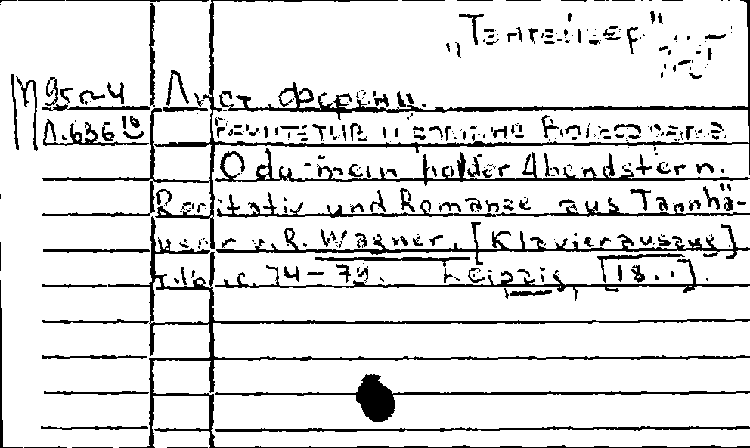 „Тангейзер"
М 95п-4 Лист Ференц.
Л.636 Речитатив и романс Вольфрама
O du mein holder Abendstern.
Recitativ und Romanze aus Tannhä-
user v. R. Wagner. [Klavierauszug]
с. 74-79. Leipzig, [18..].